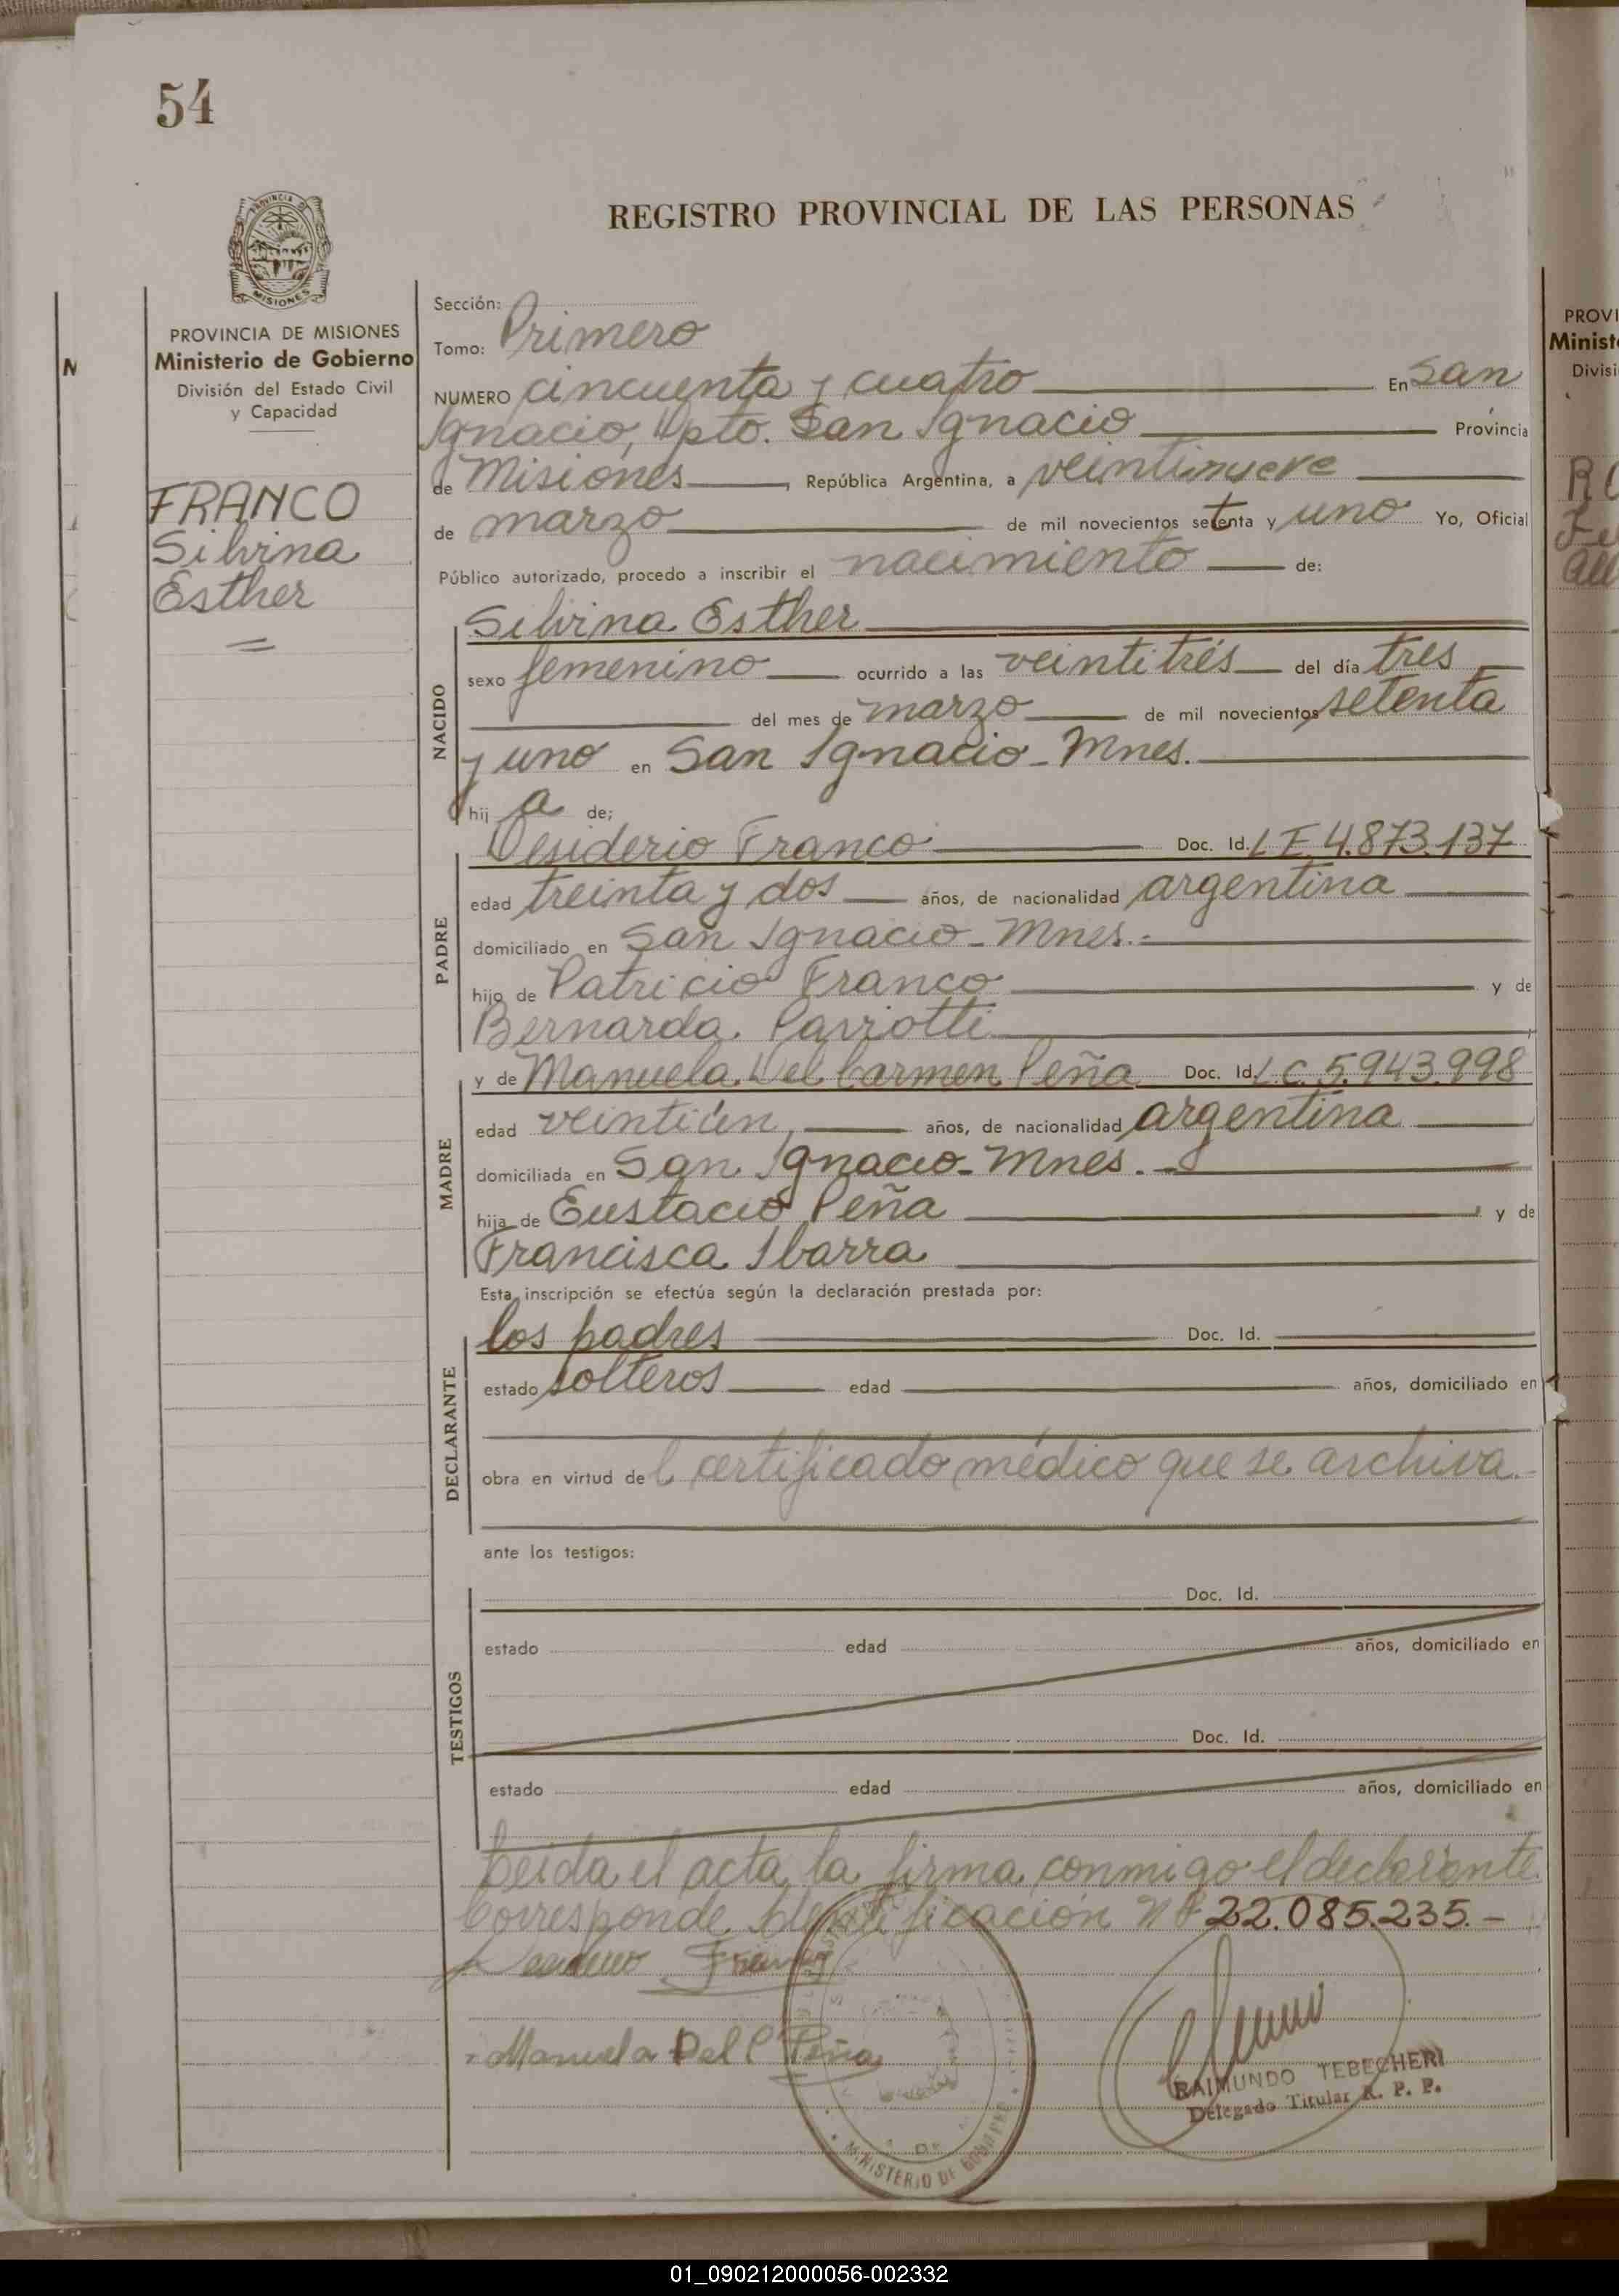 54
REGISTRO PROVINCIAL DE LAS PERSONAS
PROVINCIA DE MISIONES
MISIONES
PROVINCIA DE MISIONES
Ministerio de Gobierno
División del Estado Civil
y Capacidad
FRANCO
Silvina
Esther
Sección:
Tomo: Primero
NUMERO cincuenta y cuatro En San
Ignacio, Dpto. San Ignacio Provincia
de Misiones, República Argentina, a veintinueve
de marzo de mil novecientos setenta y uno Yo, Oficial
Público autorizado, procedo a inscribir el nacimiento de:
NACIDO
Silvina Esther
sexo femenino ocurrido a las veintitrés del día tres
del mes de marzo de mil novecientos setenta
y uno en San Ignacio - Mnes.
hija de;
PADRE
Desiderio Franco Doc. Id. L E 4.873.137
edad treinta y dos años, de nacionalidad argentina
domiciliado en San Ignacio - Mnes.-
hijo de Patricio Franco y de
Bernarda
MADRE
y de Manuela Del Carmen Peña Doc. Id. L.C. 5.943.998
edad veintiún, años, de nacionalidad argentina
domiciliada en San Ignacio - Mnes.
hija de Eustacio Peña y de
Francisca Ibarra
Esta inscripción se efectúa según la declaración prestada por:
DECLARANTE
los padres Doc. Id.
estado solteros edad años, domiciliado en
obra en virtud del certificado médico que se archiva.-
ante los testigos:
TESTIGOS
Doc. Id.
estado edad años, domiciliado en
Doc. Id.
estado edad años, domiciliado en
Leida el acta, la firma conmigo el declarante.
Corresponde Identificación Nº 22.085.235.-
Desiderio Franco
Manuela Del C Peña
MINISTERIO DE GOBIERNO
RAIMUNDO TEBECHERI
Delegado Titular R. P. P.
PROVI
Minist
Divisi
01_090212000056-002332